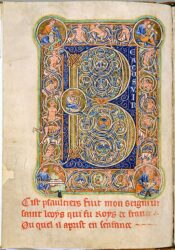 B
EATUSVIR
Cist psaultiers fuit mon seigneur
saint looys qui fu Roys de france
Ou quel il aprist en senfance